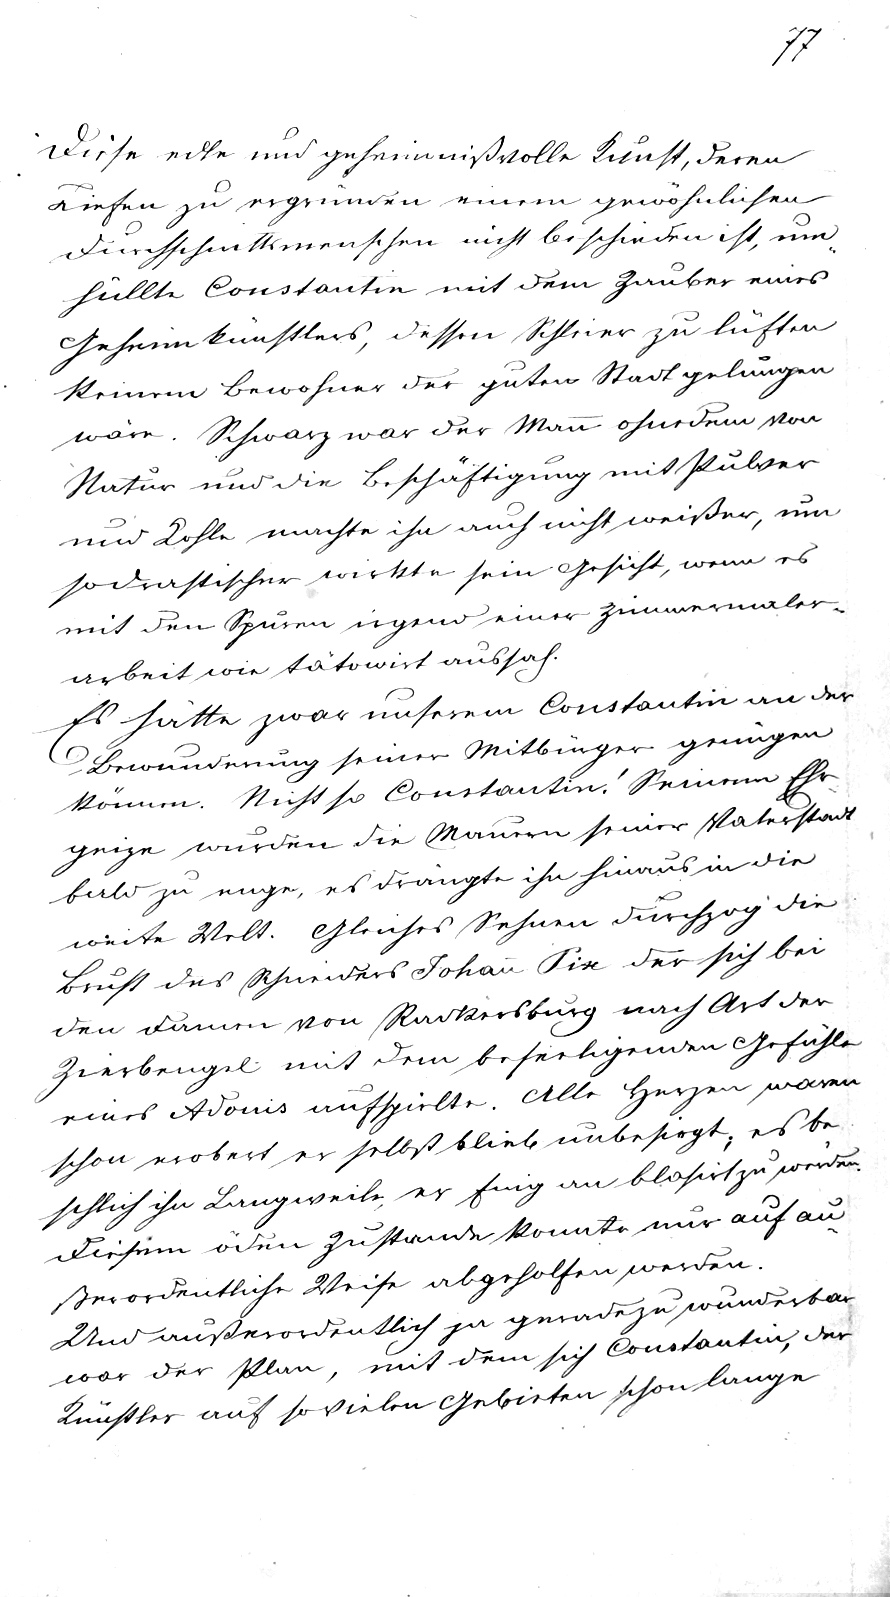 77
Diese edle und geheimnißvolle Kunst, deren
Tiefen zu ergründen einem gewöhnlichen
Durchschnittsmenschen nicht beschieden ist, um-
hüllte Constantin mit dem Zauber eines
Geheimkünstlers, dessen Schleier zu lüften
keinem Bewohner der guten Stadt gelungen
wäre. Schwarz war der Mañ ohnedem von
Natur und die Beschäftigung mit Pulver
und Kohle machte ihn auch nicht weißer, um
so drastischer wirkte sein Gesicht, wenn es
mit den Spuren irgend einer Zimmermaler-
arbeit wie tätowirt aussah.
Es hätte zwar unserem Constantin an der
Bewunderung seiner Mitbürger genügen
können. Nicht so Constantin! Seinem Ehr-
geize wurden die Mauern seiner Vaterstadt
bald zu enge, es drängte ihn hinaus in die
weite Welt. Gleiches Sehnen durchzog die
Brust des Schneiders Johañ Pix der sich bei
den Damen von Radkersburg nach Art der
Zierbengel mit dem beseeligenden Gefühle
eines Adonis aufspielte. Alle Herzen waren
schon erobert er selbst blieb unbesiegt; es be-
schlich ihn Langweile, er fing an blasirt zu werden.
Diesem öden Zustande konnte nur auf au-
ßerordentliche Weise abgeholfen werden.
Und außerordentlich ja geradezu wunderbar
war der Plan, mit dem sich Constantin, der
Künstler auf so vielen Gebieten schon lange